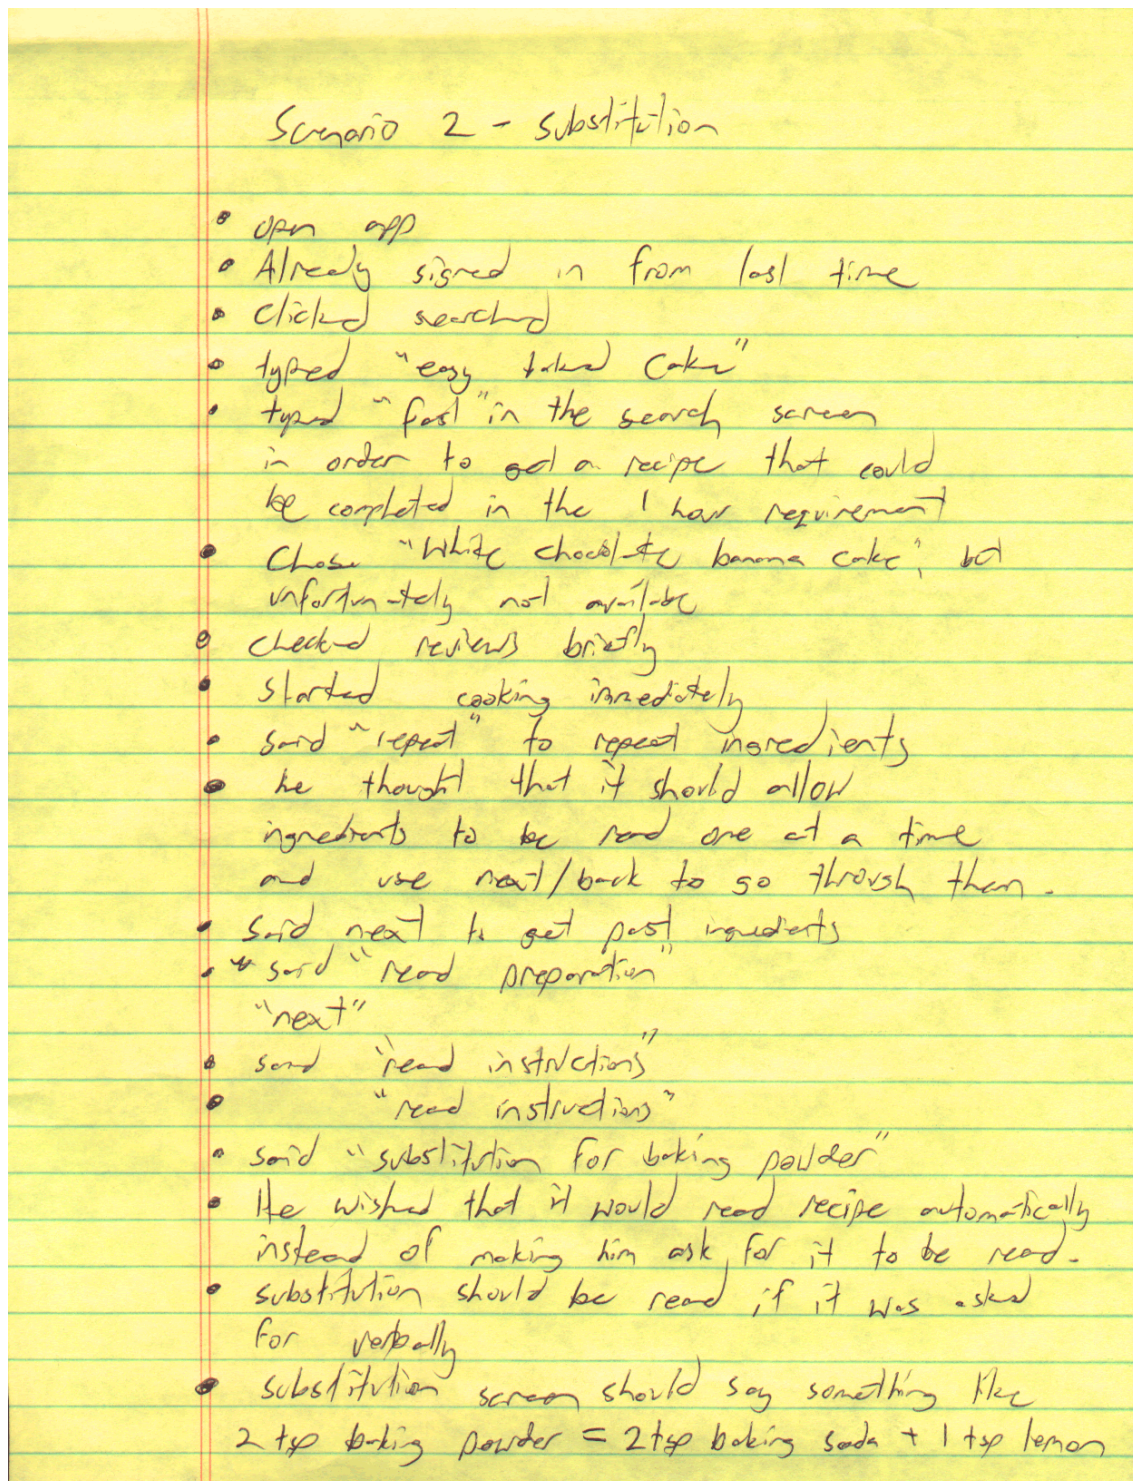 Scenario 2 - Substitution
• open app
• Already signed in from last time
• clicked searched
• typed "easy baked cake"
• typed "fast" in the search screen
in order to get a recipe that could
be completed in the 1 hour requirement
• Chose "White chocolate banana cake", but
unfortunately not available
• checked reviews briefly
• Started cooking immediately
• said "repeat" to repeat ingredients
• he thought that it should allow
ingredients to be read one at a time
and use next/back to go through them.
• said next to get past ingredients
• " said "read preparation"
"next"
• said "read instructions"
• "read instructions"
• said "substitution for baking powder"
• He wished that it would read recipe automatically
instead of making him ask for it to be read.
• substitution should be read if it was asked
for verbally
• substitution screen should say something like
2 tsp baking powder = 2 tsp baking soda + 1 tsp lemon